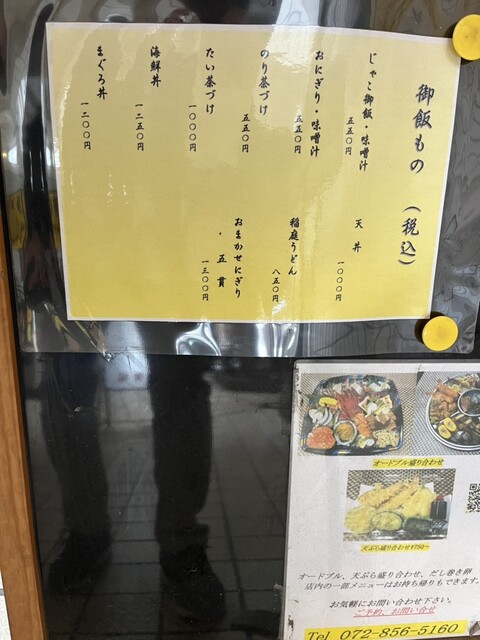 御飯もの （税込）
じゃこ御飯・味噌汁
五五〇円
おにぎり・味噌汁
五五〇円
のり茶づけ
五五〇円
たい茶づけ
一〇〇〇円
海鮮丼
一二五〇円
まぐろ丼
一二〇〇円
天丼
一〇〇〇円
稲庭うどん
八五〇円
おまかせにぎり
・五貫
一三〇〇円
オードブル盛り合わせ
天ぷら盛り合わせ¥750～
オードブル、天ぷら盛り合わせ、だし巻き卵
店内の一部メニューはお持ち帰りもできます。
お気軽にお問い合わせ下さい。
ご予約、お問い合せ
Tel 072-856-5160